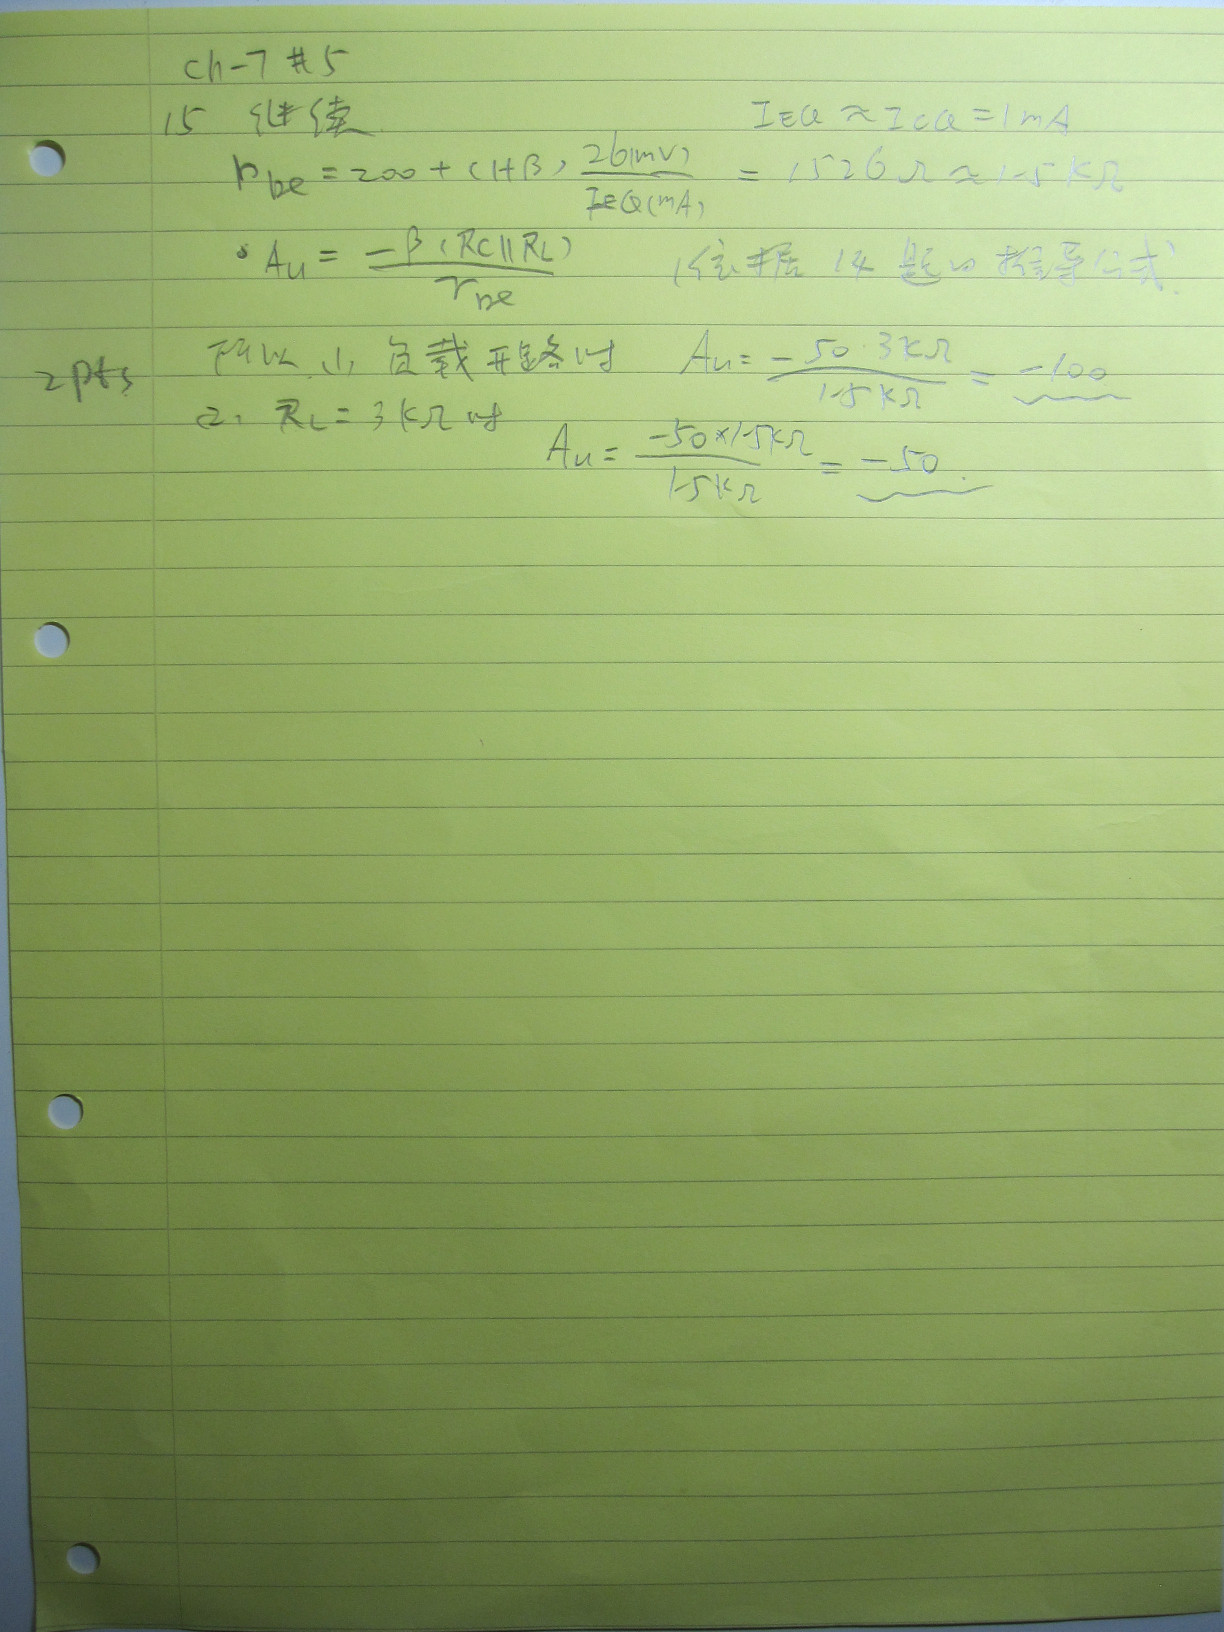 Ch-7 #5
15 继续 IEQ ≈ ICQ = 1mA
rbe = 200 + (1+β) 26(mV)/IEQ(mA) = 1526Ω ≈ 1.5KΩ
Au = -β(RC||RL)/rbe (依据 14 题的推导公式)
2pts 所以 (1) 负载开路时 Au = -50·3KΩ/1.5KΩ = -100
(2) RL = 3KΩ时
Au = -50×1.5KΩ/1.5KΩ = -50.